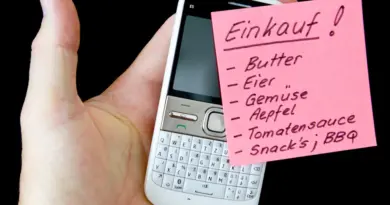 Einkauf !
- Butter
- Eier
- Gemüse
- Aepfel
- Tomatensauce
- Snack's ; BBQ